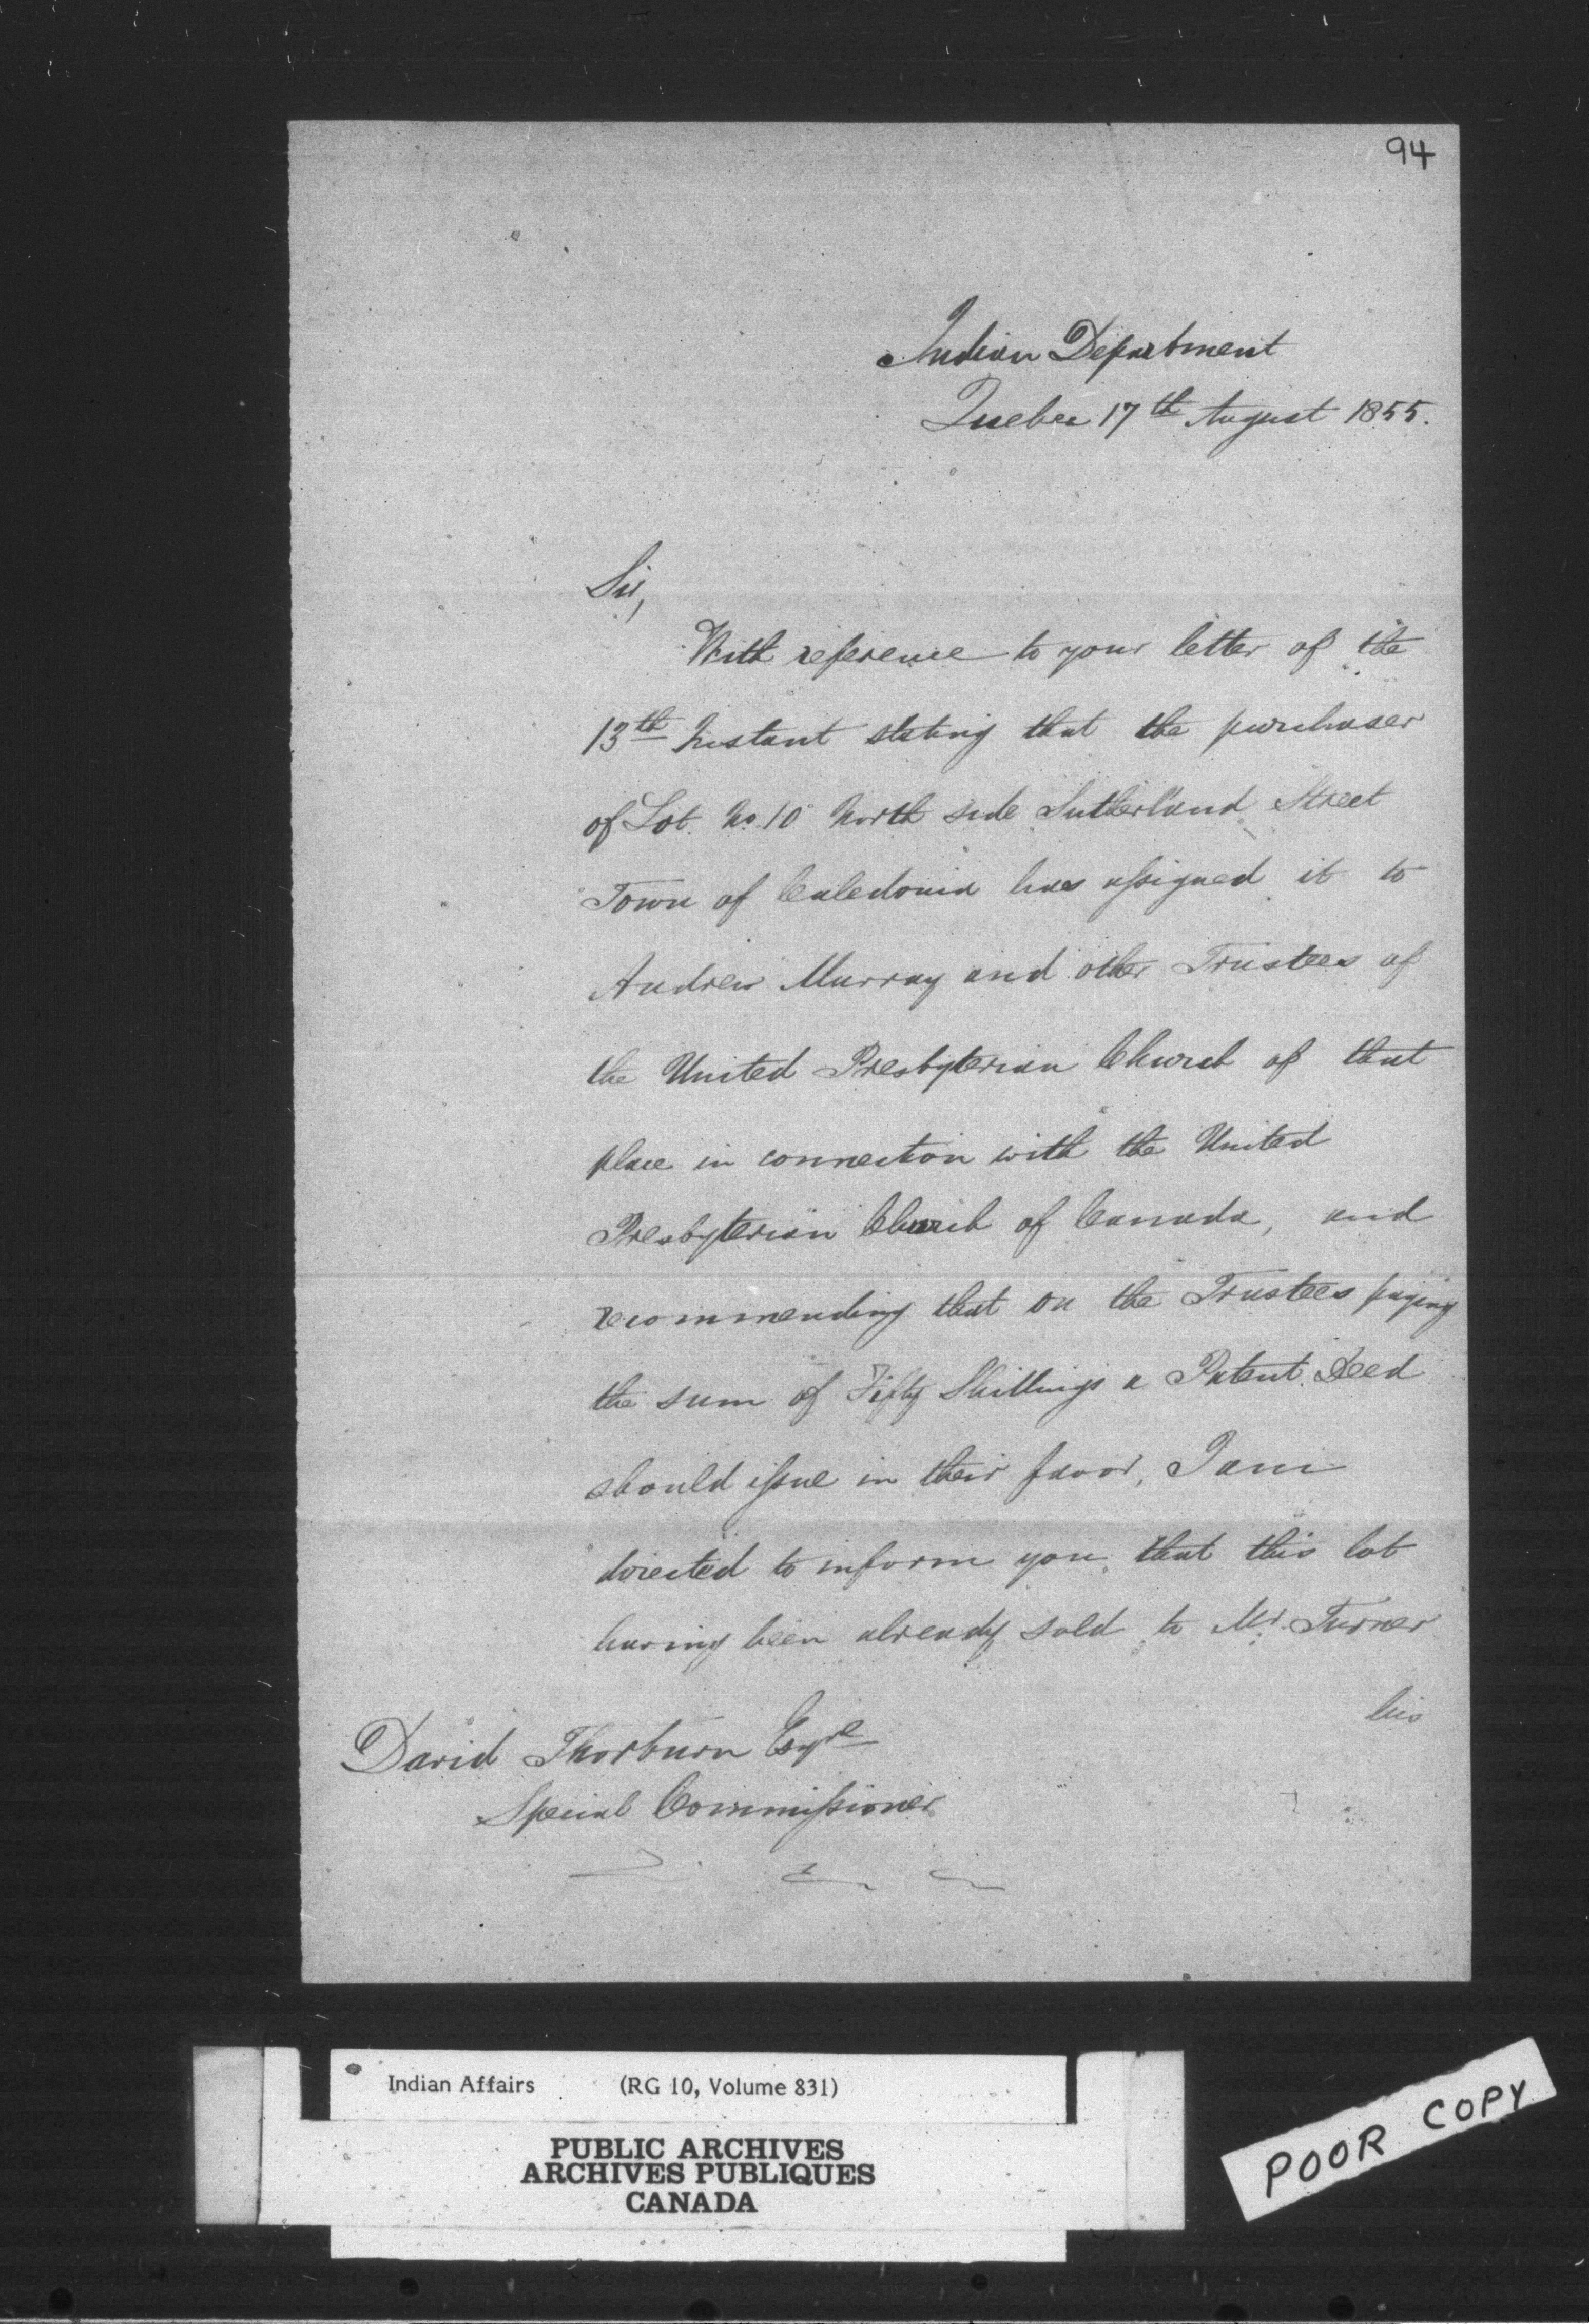 94
Indian Department
Quebec 17th August 1855.
Sir,
With reference to your letter of the
13th Instant stating that the purchaser
of Lot No. 10 North side Sutherland Street
Town of Caledonia has assigned it to
Andrew Murray and other Trustees of
the United Presbyterian Church of that
place in connection with the United
Presbyterian Church of Canada, and
recommending that on the Trustees paying
the sum of Fifty Shillings a Patent Deed
should issue in their favor, I am
directed to inform you that this lot
having been already sold to Mr. Turner
his
David Thorburn Esqre
Special Commissioner
Indian Affairs (RG 10, Volume 831)
PUBLIC ARCHIVES
ARCHIVES PUBLIQUES
CANADA
POOR COPY